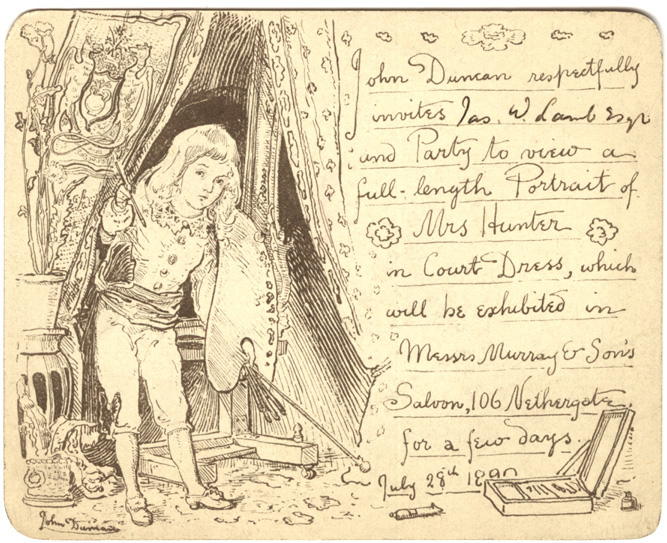 John Duncan respectfully
invites Jas. W. Lamb Esqr
and Party to view a
full-length Portrait of
Mrs Hunter
in Court Dress, which
will be exhibited in
Messrs Murray & Son's
Saloon, 106 Nethergate,
for a few days.
July 28th 1890
John Duncan